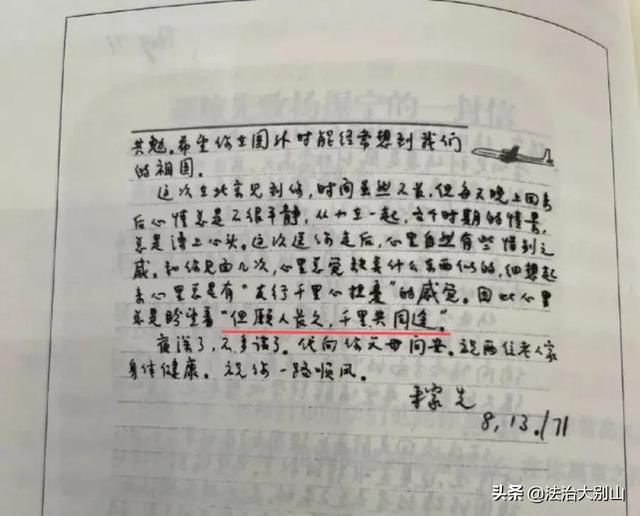 共勉。希望你在国外时能经常想到我们
的祖国。
这次在北京见到你，时间虽然不长，但每天晚上回去
后心情总是不很平静，从小在一起，各个时期的情景，
总是涌上心头。这次送你走后，心里自然有些惜别之
感。和你见面几次，心里总觉缺点什么东西似的，细想起
来心里总是有“友行千里心担忧”的感觉。因此心里
总是盼望着“但愿人长久，千里共同途。”
夜深了，不多谈了。代向你父母问安。祝两位老人家
身体健康。祝你一路顺风。
稼先
8.13./71
头条 @法治大别山